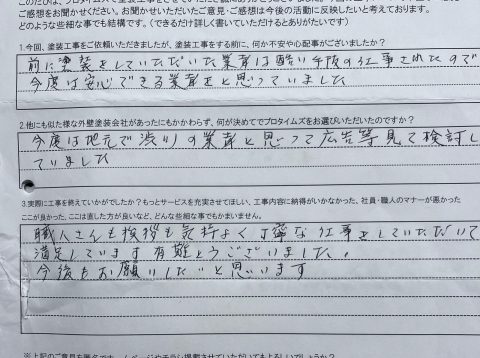 このたびは、プロタイムズで塗装工事をさせていただき誠にありがとうございました。
ご感想をお聞かせください。お聞かせいただいたご意見・ご感想は今後の活動に反映したいと考えております。
どのような些細な事でも結構です。(できるだけ詳しく書いていただけるとありがたいです)
1.今回、塗装工事をご依頼いただきましたが、塗装工事をする前に、何か不安や心配事がございましたか?
前に塗装をしていただいた業者は酷い手抜の仕事されたので
今度は安心できる業者をと思っていました
2.他にも似た様な外壁塗装会社があったにもかかわらず、何が決めてでプロタイムズをお選びいただいたのですか?
今度は地元で渋川の業者と思って広告等見て検討し
ていました
3.実際に工事を終えていかがでしたか?もっとサービスを充実させてほしい、工事内容に納得がいかなかった、社員・職人のマナーが悪かった
ここが良かった、ここは直した方が良いなど、どんな些細な事でもかまいません。
職人さんも挨拶も気持よく丁寧な仕事をしていただいて
満足しています有難とうございました。
今後もお願いしたいと思います
※上記のご意見を匿名でホームページやチラシに掲載させていただいてもよろしいでしょうか?